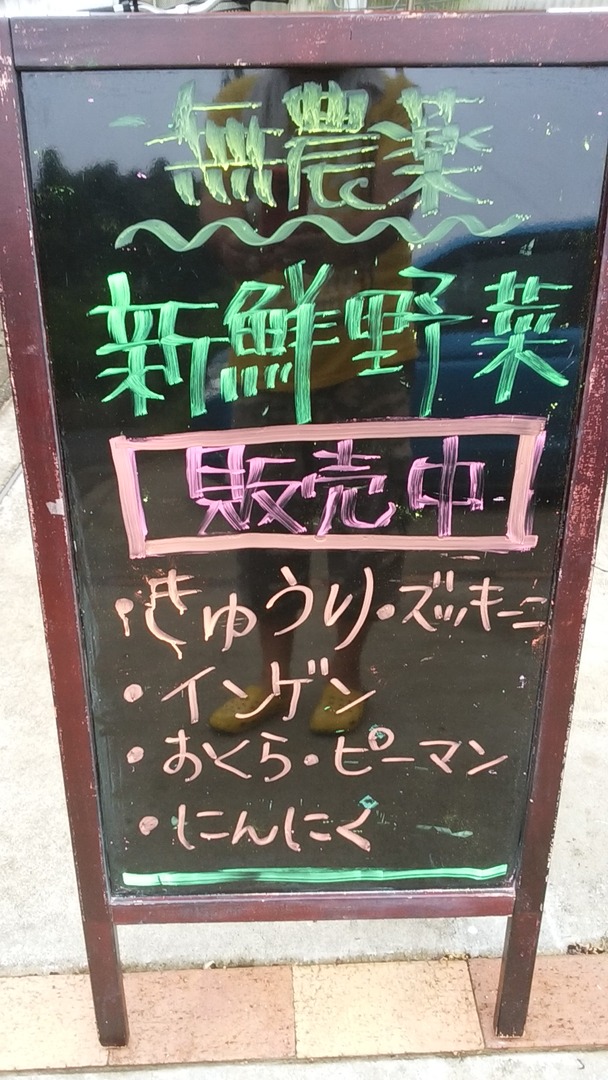 無農薬
新鮮野菜
販売中
・きゅうり・ズッキーニ
・インゲン
・おくら・ピーマン
・にんにく